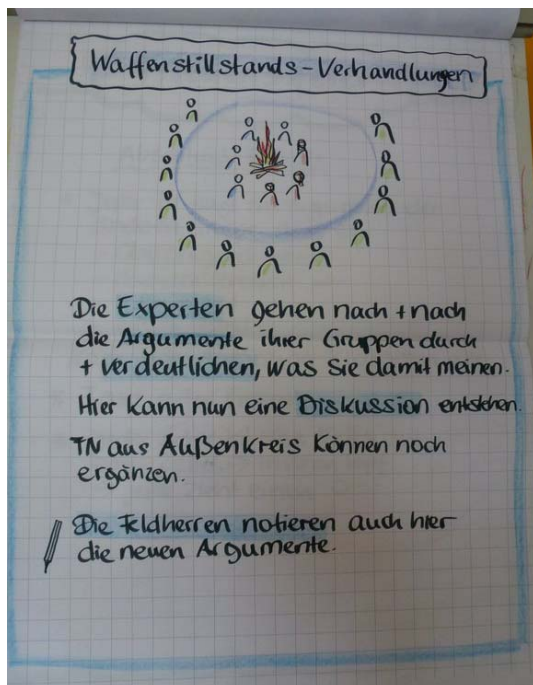 Waffenstillstands-Verhandlungen
Die Experten gehen nach + nach
die Argumente ihrer Gruppen durch
+ verdeutlichen, was sie damit meinen.
Hier kann nun eine Diskussion entstehen.
TN aus Außenkreis können noch
ergänzen.
Die Feldherren notieren auch hier
die neuen Argumente.